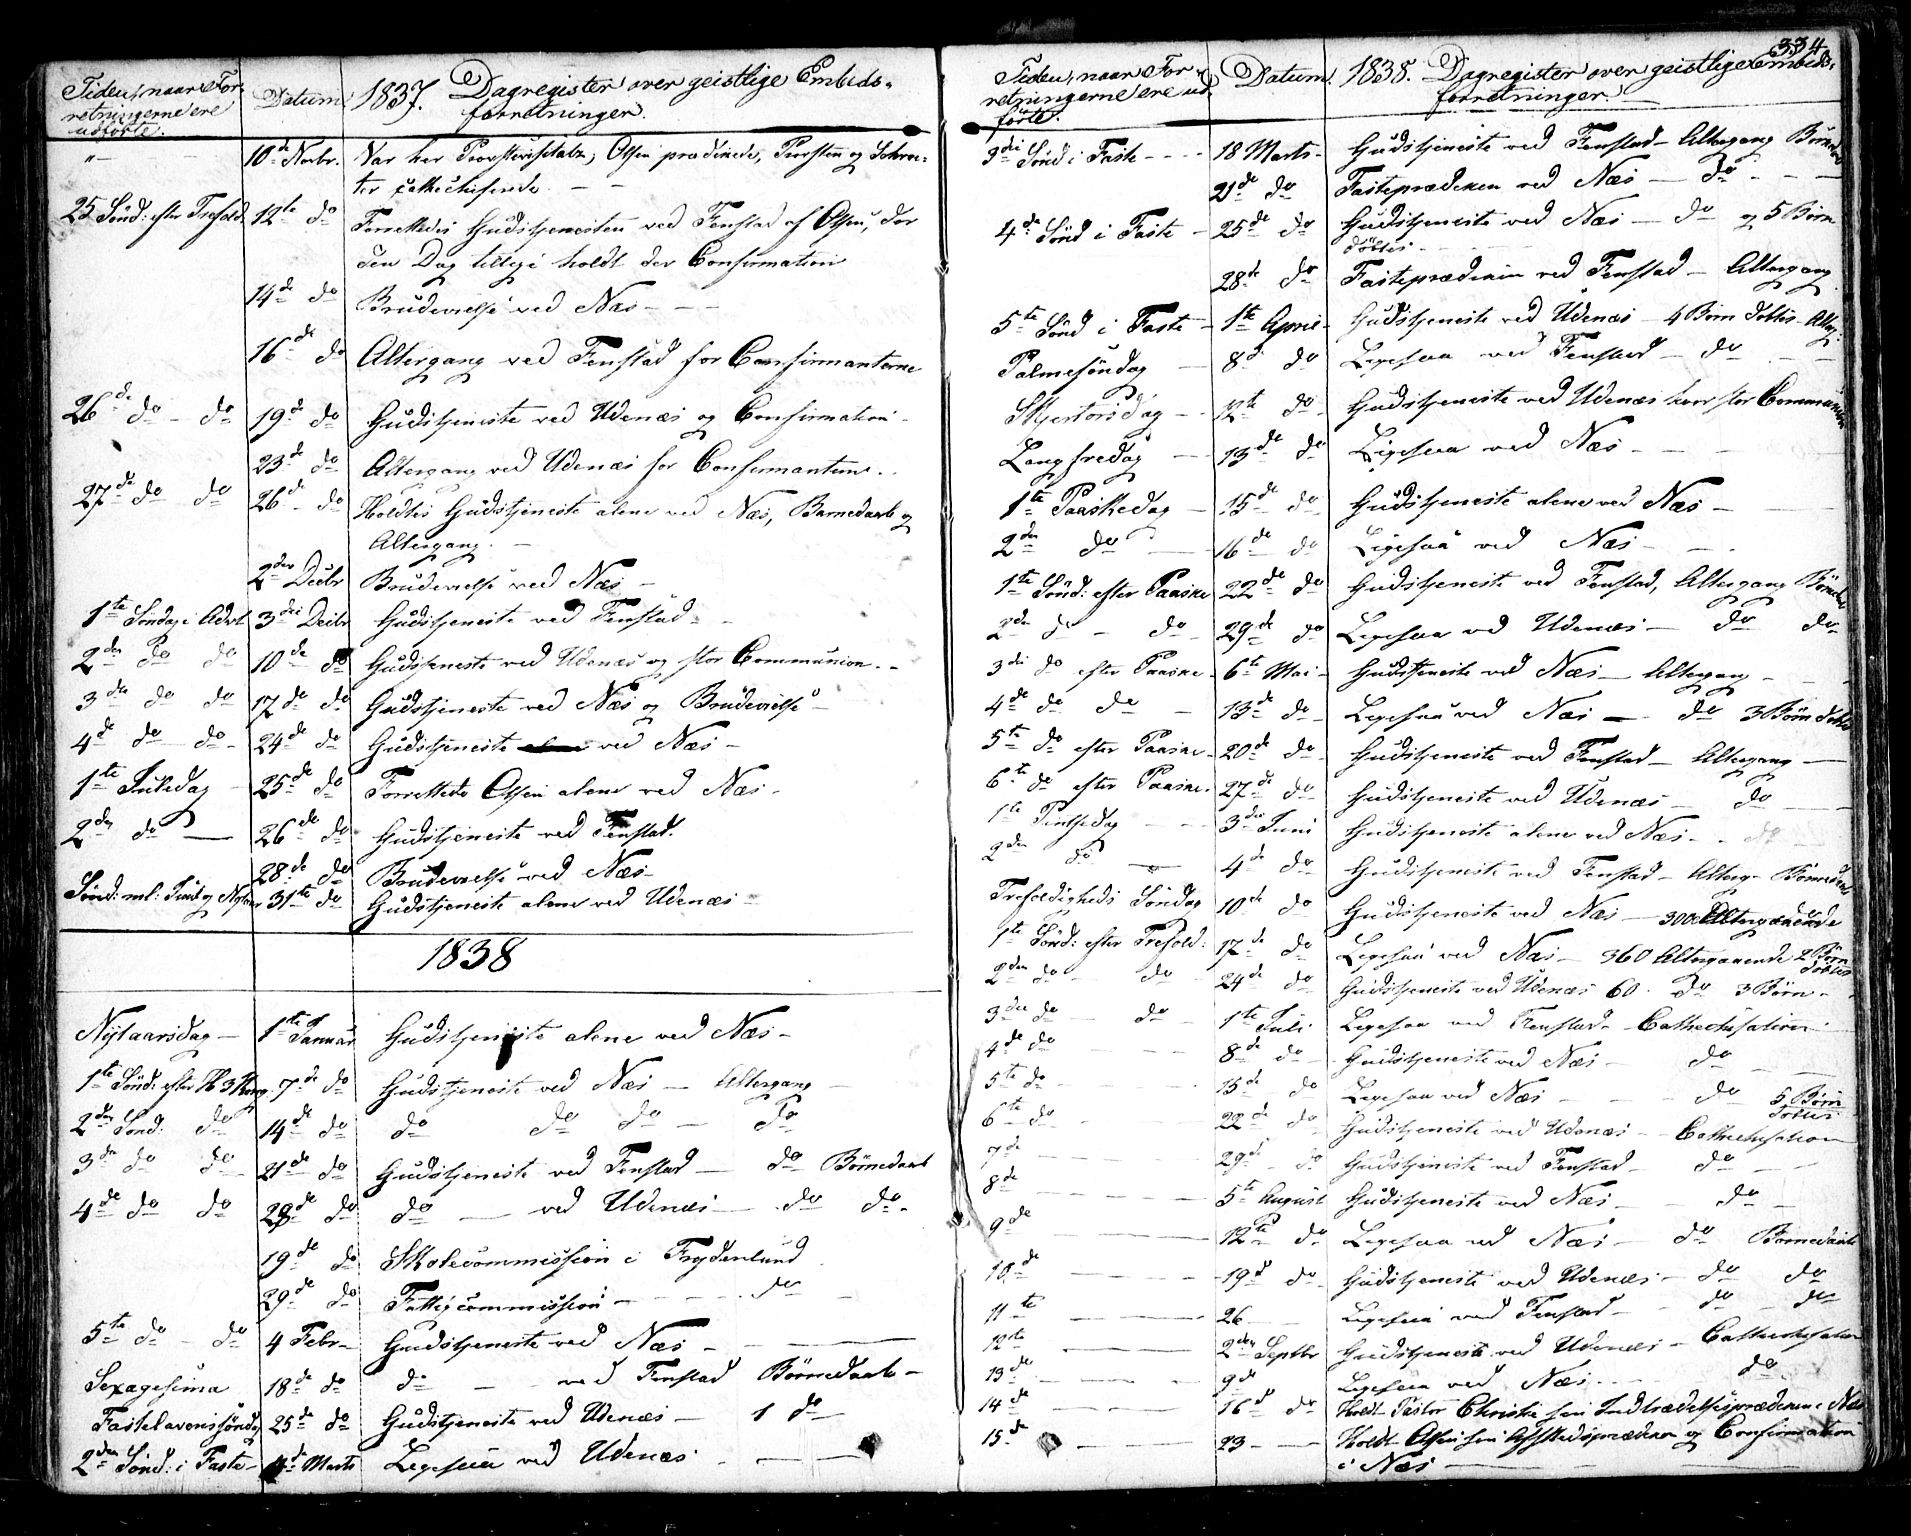 Tiden, naar For-
retningerne ere
udførte.
Datum.
1837. Dagregister over geistlige Embeds-
forretninger.
"— 10de Novbr. Var her Provstevisitats, Olsen prædikede, Provsten og Schrø-
ter catechiserede. — —
25 Sönd: efter Trefold. 12te do Forrettedes Gudstjenesten ved Fenstad af Olsen, der
den Dag tillige holdt der Confirmation
14de do Brudevielse ved Næs — —
16de do Altergang ved Fenstad for Confirmanterne
26de do — do 19de do Gudstjeneste ved Udenæs og Confirmation -
23de do Altergang ved Udenæs for Confirmanterne.
27de do do 26de do Holdtes Gudstjeneste alene ved Næs, Barnedaab og
Altergang. —
2den Decbr Brudevielse ved Næs —
1te Søndag i Advt 3die Decbr Gudstjeneste ved Fenstad - -
2den do do 10de do Gudstjeneste ved Udenæs og stor Communion. -
3die do do 17de do Gudstjeneste ved Næs og Brudevielse —
4de do do - 24de do Gudstjeneste ved Næs -
1te Juledag 25de do Forrettede Olsen alene ved Næs -
2den do — 26de do Gudstjeneste ved Fenstad.
28de do Brudevielse ved Næs -
Sönd: ml: Juul og Nytaar 31te do Gudstjeneste alene ved Udenæs -
1838
Nytaarsdag — 1te Januar Gudstjeneste alene ved Næs -
1te Sönd: efter H 3 Kong. 7de do Gudstjeneste ved Næs — Altergang —
2den Sönd: do 14de do do do do — do
3die do do 21de do Gudstjeneste ved Fenstad — do Børnedaab
4de do do 28de do do — ved Udenæs — do do -
19de do Skolecommission i Frydenlund
29de do Fattigcommission — - - - do —
5te do — do 4 Febr - Gudstjeneste ved Næs - —
Sexagesima 18de do do — ved Fenstad Børnedaab -
Fastelavenssöndag 25de do Gudstjeneste ved Udenæs — 1 do
2den Sönd: i Faste - 4de Marts Ligesaa ved Udenæs - — —
334
Tiden, naar For-
retningerne ere ud-
førte.
Datum.
1838. Dagregister over geistlige Embeds-
forretninger. —
3die Sönd i Faste - - - 18 Marts - Gudstjeneste ved Fenstad — Altergang Børnedaab
21de do Fasteprædiken ved Næs — do - - —
4de Sönd i Faste - 25de do Gudstjeneste ved Næs — do og 5 Børn
döbtes - - -
28de do Fasteprædiken ved Fenstad — Altergang
5te Sönd i Faste - 1te April - Gudstjeneste ved Udenæs — 4 Børn döbtes - Alterg.
Palmesöndag — 8de do Ligesaa ved Fenstad — do - —
Skjertorsdag - - 12te do Gudstjeneste ved Udenæs hvor stor Communion
Langfredag — 13de do Ligesaa ved Næs - - -
1te Paaskedag - 15de do Gudstjeneste alene ved Næs - —
2den do — 16de do Ligesaa ved Næs - - .
1te Sönd: efter Paaske 22de do Gudstjeneste ved Fenstad, Altergang Børnedaab
2den do - do - 29de do Ligesaa ved Udenæs — do do -
3die do efter Paaske - 6te Mai - Gudstjeneste ved Næs — Altergang - - -
4de do do - 13de do - Ligesaa ved Næs — do 3 Børn döbtes
5te do efter Paaske - 20de do - Gudstjeneste ved Fenstad — Altergang —
6te do efter Paaske - 27de do - Gudstjeneste ved Udenæs — do —
1te Pintsedag - - 3die Juni Gudstjeneste alene ved Næs - - do -
2den do — 4de do - Gudstjeneste ved Fenstad — Alterg - Børnedaab
Trefoldigheds Söndag 10de do Gudstjeneste ved Næs — 300 Altergaaende
1te Sönd: efter Trefold: 17de do Ligesaa ved Næs — 360 Altergaaende 2 Børn
döbtes
2den do - do - 24de do Gudstjeneste ved Udenæs 60 - do 3 Børn -
3die do — do - 1te Juli - Ligesaa ved Fenstad - Cathechisation -
4de do - - - 8de do - Gudstjeneste ved Næs — do —
5te do - - - 15de do Ligesaa ved Næs - - - do 5 Børn
döbtes
6te do - - - 22de do Gudstjeneste ved Udenæs - - Cathechisation
7de — 29de - do Gudstjeneste ved Fenstad - do - —
8de — 5te August Gudstjeneste ved Næs - - do -
9de — 12te do - Ligesaa ved Næs — do Børnedaab
10de — 19de do - Gudstjeneste ved Udenæs — do do
11te — 26 - Ligesaa ved Fenstad — - do - do
12te — 2den Septbr Gudstjeneste ved Udenæs - Cathechisation
13de — 9de Ligesaa ved Næs - - - do -
14de — 16de do Holdt Pastor Christie sin Indtrædelsesprædiken i Næs
15de — 23 — Holdt Olsen sin Afskedsprædiken og Confirmation
i Næs —